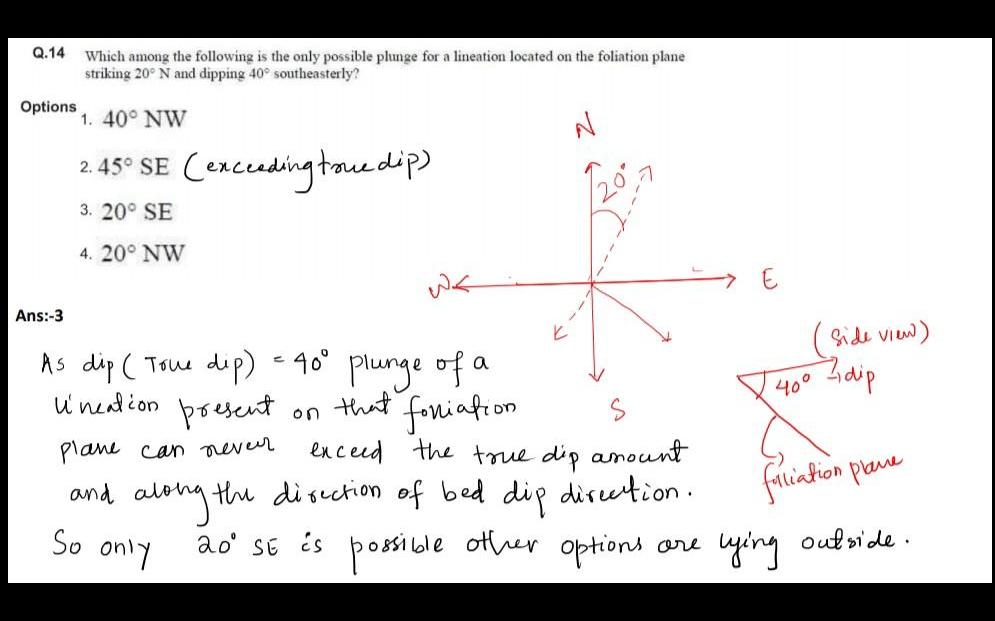 Q.14 Which among the following is the only possible plunge for a lineation located on the foliation plane
striking 20° N and dipping 40° southeasterly?
Options
1. 40° NW
2. 45° SE (exceeding true dip)
3. 20° SE
4. 20° NW
N
20°
W
E
S
Ans:-3
(side view)
40°
dip
foliation plane
As dip (True dip) = 40° plunge of a
lineation present on that foniation
plane can never exceed the true dip amount
and along the direction of bed dip direction.
So only 20° SE is possible other options are lying outside.